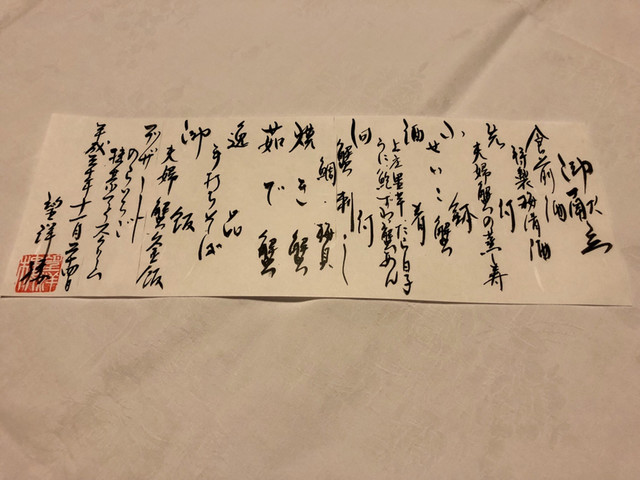 御献立
食前酒
特製梅酒
先付
夫婦蟹の蒸し寿
小鉢
せいこ蟹
酒肴
上庄里芋 たら白子
うに 鮑 ずわい蟹あん
向付
蟹刺し
鯛・梅貝
焼き蟹
茹で蟹
逸品
手打ちそば
御飯
夫婦蟹釜飯
デザート
アイスクリーム
平成三十年十一月二十四日
望洋楼